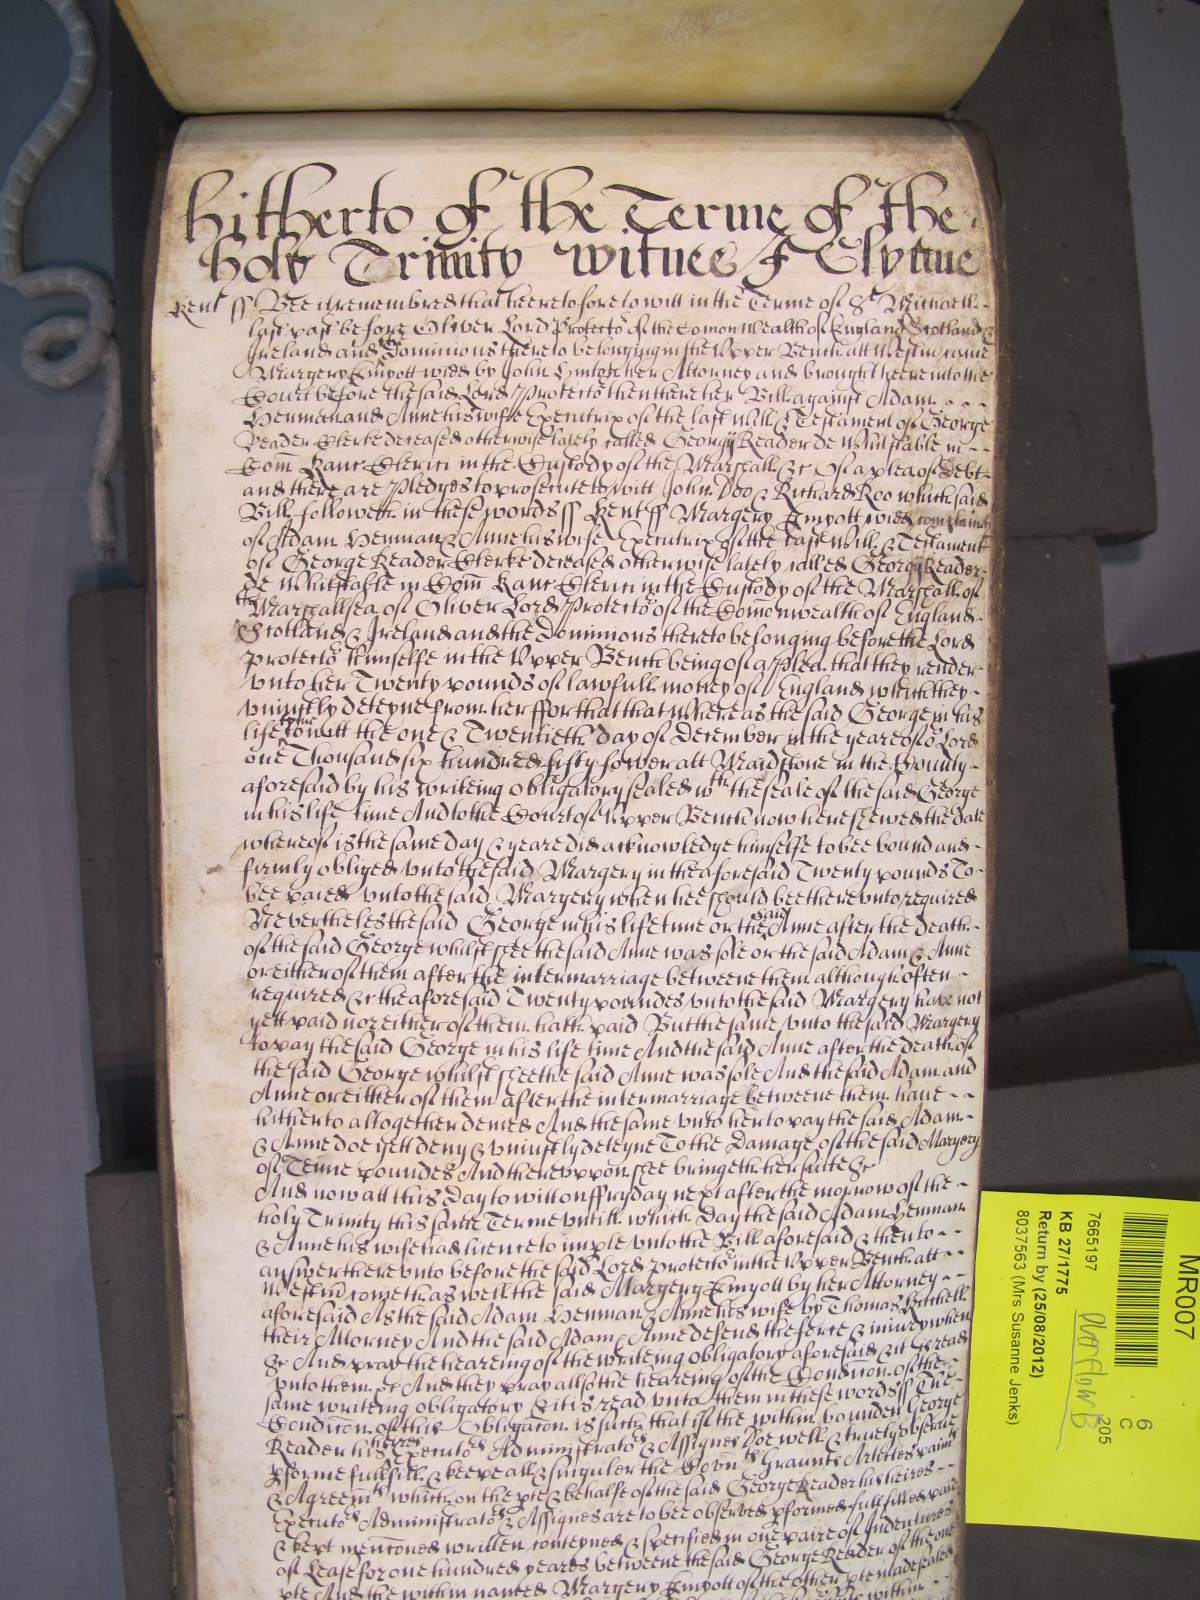 hitherto of the Terme of the
holy Trinity witnes J Glynne
Kent ss Bee it remembred that heeretofore to witt in the Terme of St Michaell
last past before Oliver Lord Protector of the Comon Wealth of England Scotland &
Ireland and the Dominions thereto belonging in the Upper Bench att Westm came
Margery Empott widd by John her Attorney and brought heere into the
Court before the said Lord Protector then there her Bill against Adam
Henman and Anne his wife Executrix of the last Will & Testament of George
Reader Clerke deceased otherwise lately called George Reader de Whitstable in
Com Kanc Clerici in the Custody of the Marshall &c Of a plea of Debt
and there are Pledges to prosecute to witt John Doo & Richard Roo which said
Bill followeth in these words ss Kent ss Margery Empott widd complaines
of Adam Henman & Anne his wife Executrix of the last Will & Testament
of George Reader Clerke deceased otherwise lately called George Reader
de Whitstable in Com Kanc Clerici in the Custody of the Marshall of
the Marshallsea of Oliver Lord Protector of the Comonwealth of England
Scotland & Ireland and the Dominions thereto belonging before the Lord
Protector himselfe in the Upper Bench being of a Plea that they render
unto her Twenty pounds of lawfull money of England which they
uniustly deteyne from her ffor that that Whereas the said George in his
life tyme to witt the one & Twentieth day of December in the yeare of or Lord
one Thousand six hundred fifty fower att Maidstone in the County
aforesaid by his writeing obligatory sealed wth the seale of the said George
in his life time And to the Court of Upper Bench now here shewed the date
whereof is the same day & yeare did acknowledge himselfe to bee bound and
firmly obliged unto the said Margery in the aforesaid Twenty pounds To
bee paied unto the said Margery when hee should bee thereunto required
Neverthelesse the said George in his life time or the said Anne after the death
of the said George whilst shee the said Anne was sole or the said Adam & Anne
or either of them after the intermarriage betweene them although often
required &c the aforesaid Twenty poundes unto the said Margery have not
yett paid nor either of them hath paid But the same unto the said Margery
to pay the said George in his life time And the said Anne after the death of
the said George whilst shee the said Anne was sole And the said Adam and
Anne or either of them after the intermarriage betweene them have
hitherto altogether denied And the same unto her to pay the said Adam
& Anne doe yett deny & uniustly deteyne To the Damage of the said Margery
of Tenne poundes And thereuppon shee bringeth her suite &c
And now att this Day to witt on ffryday next after the morrow of the
holy Trinity this same Terme untill which Day the said Adam Henman
& Anne his wife had licence to imple unto the Bill aforesaid & then to
answer thereunto before the said Lord Protector in the Upper Bench att
Westm cometh as well the said Margery Empott by her Attorney
aforesaid As the said Adam Henman & Anne his wife by Thomas
their Attorney And the said Adam & Anne defend the force & iniury when
&c And pray the heareing of the writeing obligatory aforesaid & it is read
unto them &c And they pray allso the heareing of the Condicon of the
same writeing obligatory & it is read unto them in these words ss The
Condicon of this Obligacon is such that if the within bounden George
Reader his heires Executors Administrators & Assignes Doe well & truely observe
pforme fullfill & keepe all & singuler the Covnts Graunts Articles paimts
& Agreemts which on the pte & behalfe of the said George Reader his heires
Executors Administrators & Assignes are to bee observed pformed fullfilled paid
& kept menconed written conteyned & specified in one paire of Indentures
of Lease for one hundred yeares betweene the said George Reader of the one
pte And the within named Margery Empott of the other pte made sealed
MR007
6
C
205
7665197
KB 27/1775
Return by (25/08/2012)
8037563 (Mrs Susanne Jenks)
Overflow B